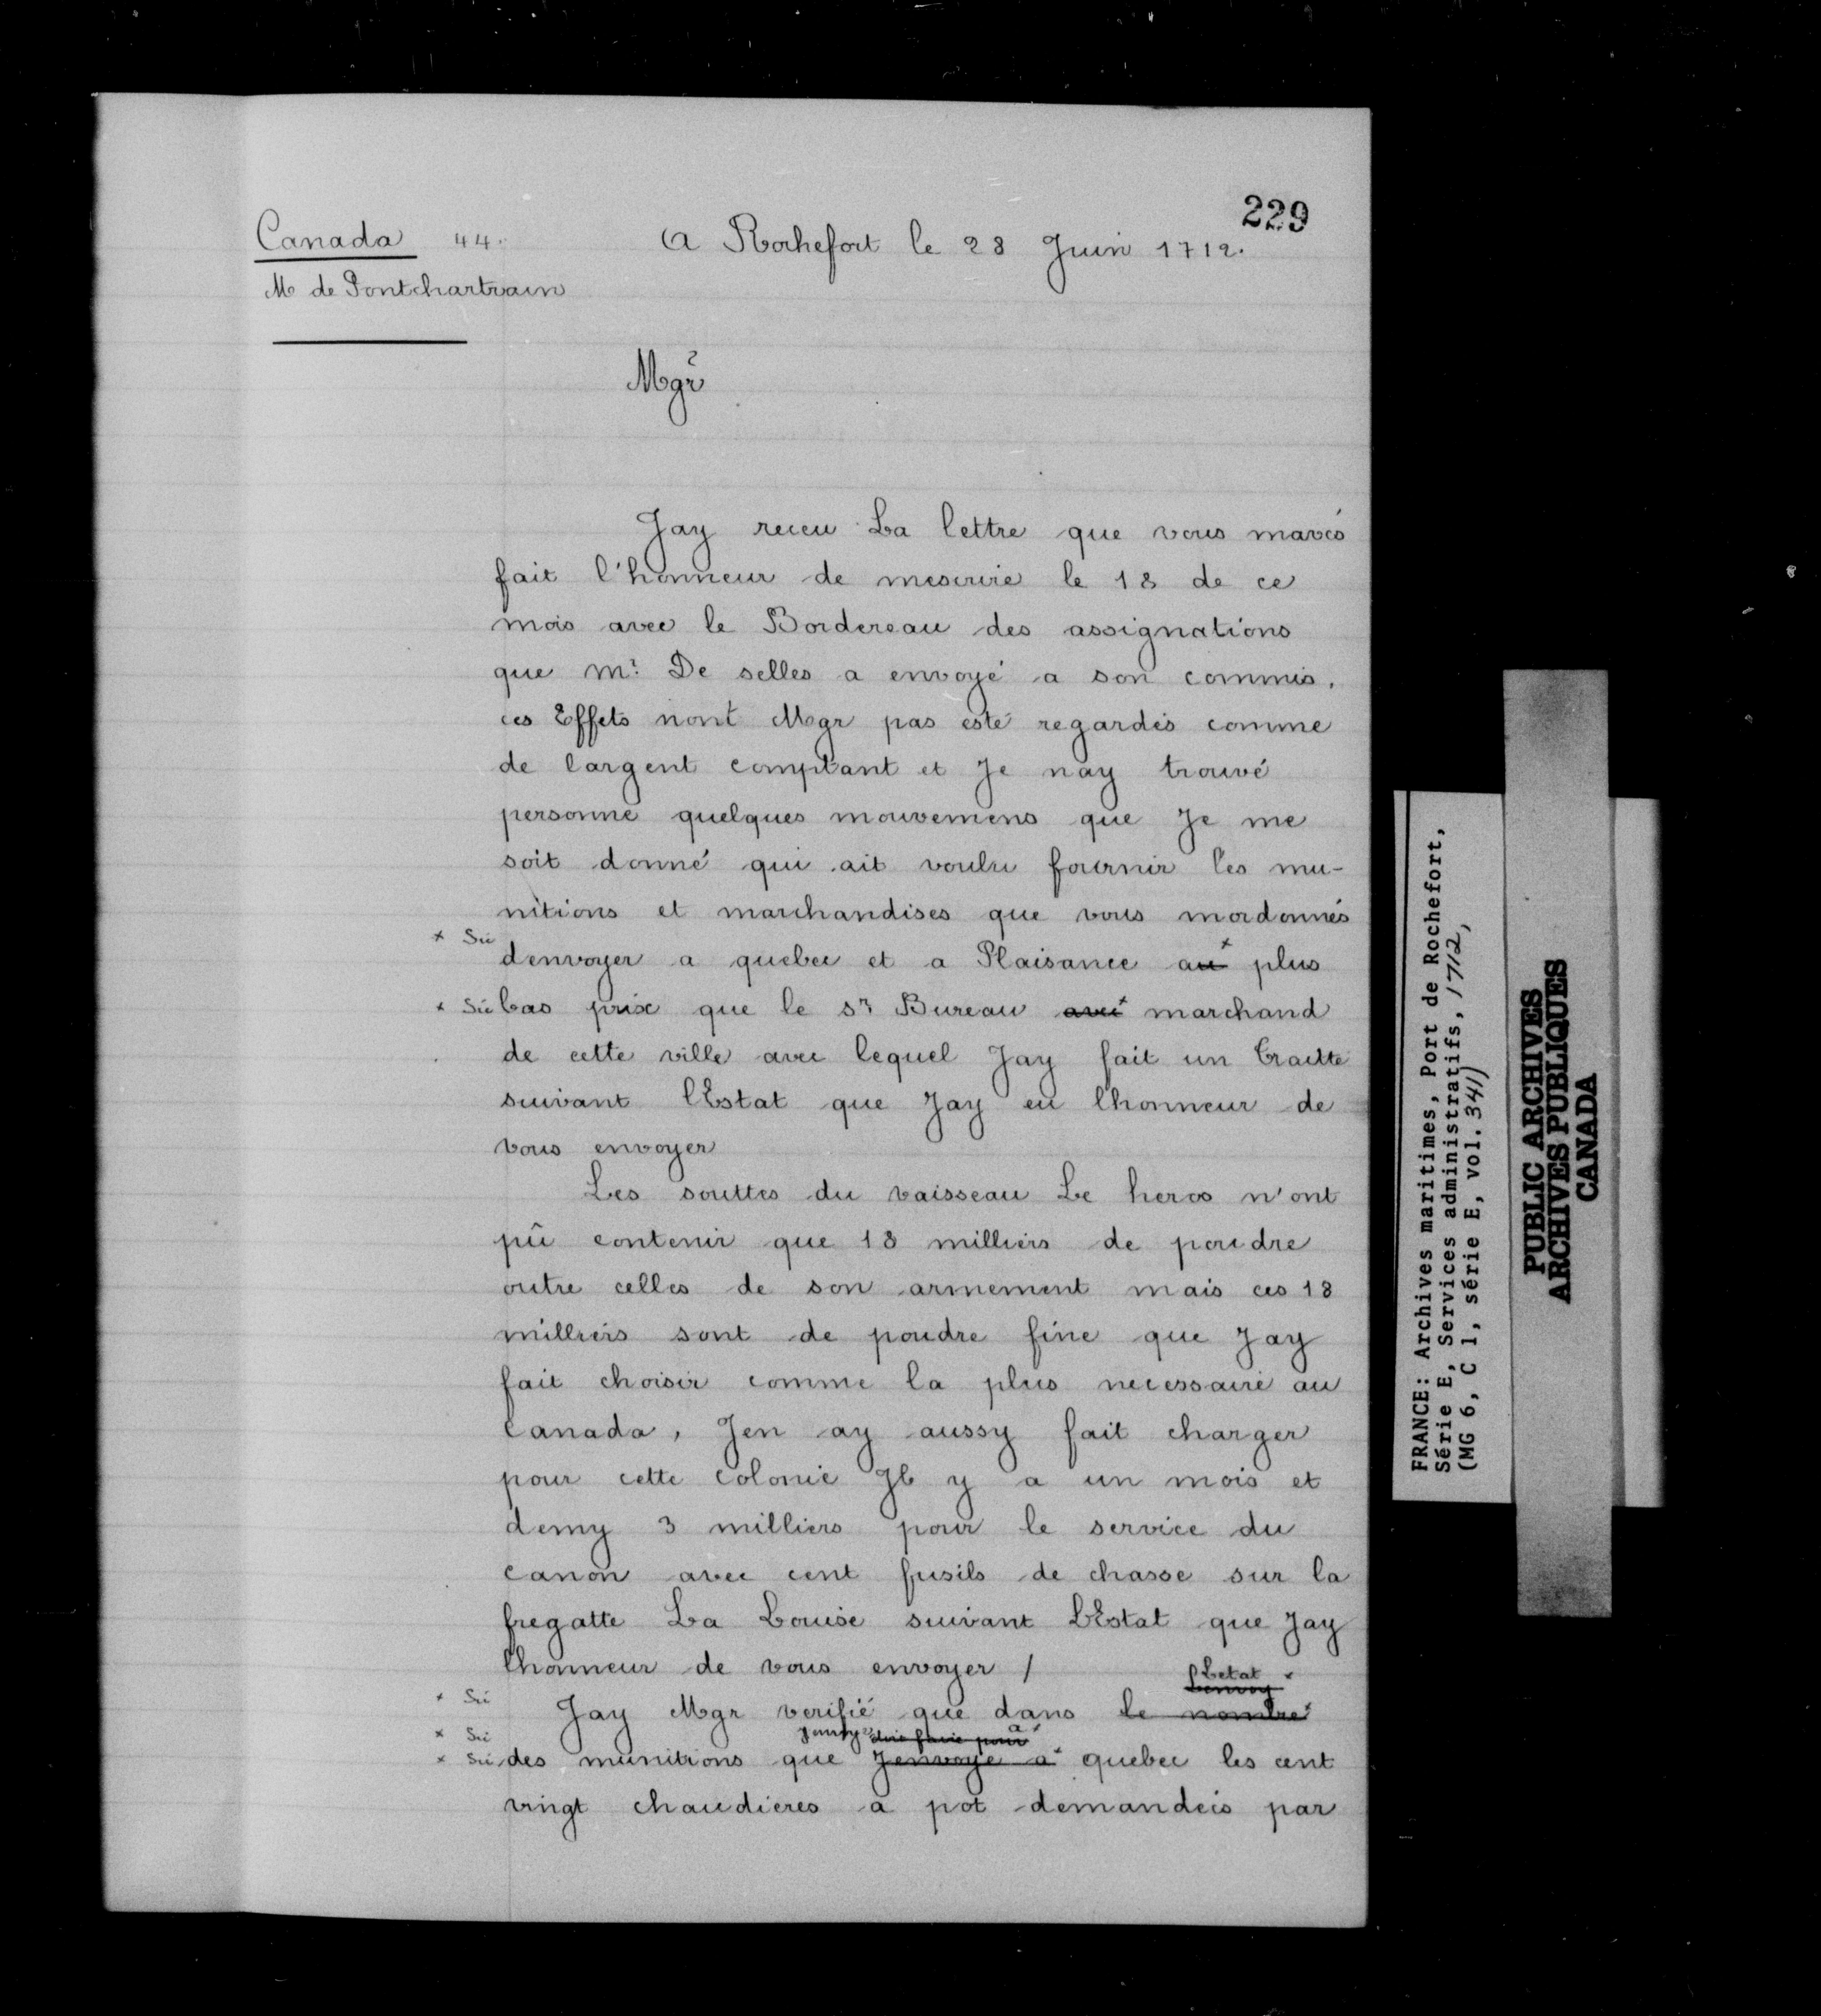 229
Canada 44.
A Rochefort le 28 Juin 1712.
Mr de Pontchartrain
Mgr
Jay receu La lettre que vous mavés
fait l'honneur de mescrire le 18 de ce
mois avec le Bordereau des assignations
que Mr. De selles a envoyé a son commis,
ces Effets nont Mgr pas esté regardés comme
de largent comptant et Je nay trouvé
personne quelques mouvemens que Je me
soit donné qui ait voulu fournir les mu-
nitions et marchandises que vous mordonnés
x Sic denvoyer a quebec et a Plaisance au x plus
x Sic bas prix que le sr Bureau avec x marchand
de cette ville avec lequel Jay fait un Traitté
suivant lEstat que Jay eu lhonneur de
vous envoyer
Les souttes du vaisseau Le heros n'ont
pû contenir que 18 milliers de poudre
outre celles de son armement mais ces 18
milliers sont de poudre fine que Jay
fait choisir comme la plus necessaire au
Canada, Jen ay aussy fait charger
pour cette colonie Jl y a un mois et
demy 3 milliers pour le service du
canon avec cent fusils de chasse sur la
fregatte La Louise suivant LEstat que Jay
lhonneur de vous envoyer /
Letat x
Lenvoy
x Sic Jay Mgr verifié que dans le nombre x
x Sic a x
x Sic des munitions que Jenvoye a x quebec les cent
vingt chaudieres a pot demandeés par
FRANCE: Archives maritimes, Port de Rochefort,
Série E, Services administratifs, 1712,
(MG 6, C 1, série E, vol. 341)
PUBLIC ARCHIVES
ARCHIVES PUBLIQUES
CANADA